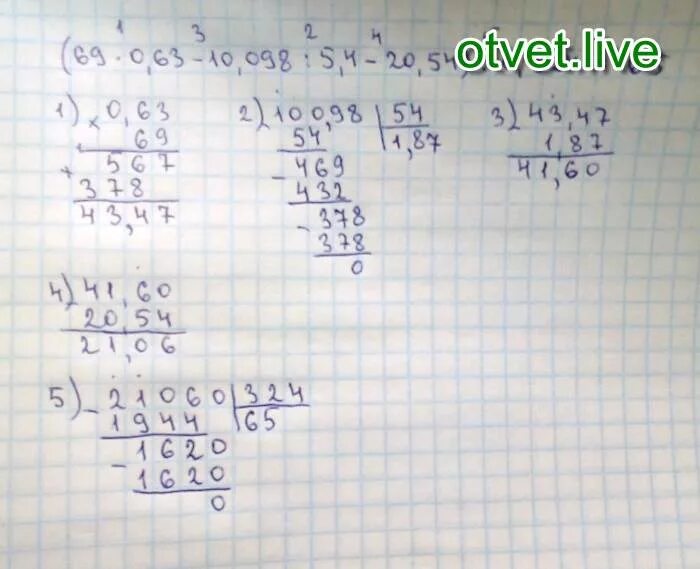 1 3 2 4
(69 · 0,63 - 10,098 : 5,4 - 20,54
otvet.live
1) × 0,63
69
+ 567
378
43,47
2) 100,98 | 54
54 | 1,87
- 469
432
- 378
378
0
3) 43,47
1,87
41,60
4) 41,60
20,54
21,06
5) - 21060 | 324
1944 | 65
- 1620
1620
0